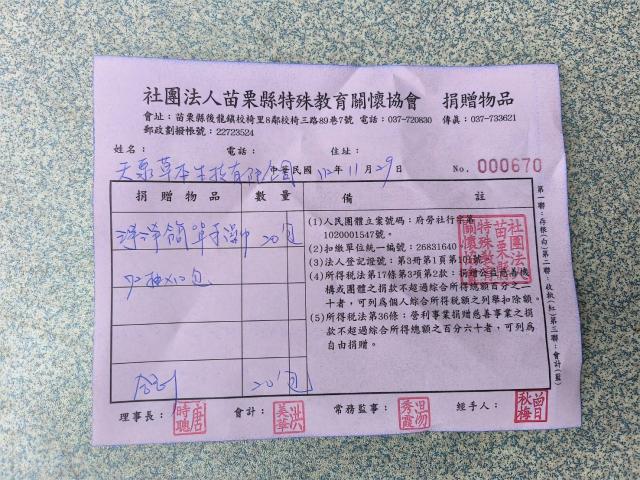 社團法人苗栗縣特殊教育關懷協會 捐贈物品
會址：苗栗縣後龍鎮校椅里8鄰校椅三路89巷7號 電話：037-720830 傳真：037-733621
郵政劃撥帳號：22723524
姓名： 電話： 住址：
中華民國 112年 11月 29日 No. 000670
捐贈物品 數量 備註
20包
(1)人民團體立案號碼：府勞社行字第
1020001547號。
(2)扣繳單位統一編號：26831640
(3)法人登記證號：第3冊第1頁第101號
(4)所得稅法第17條第3項第2款：捐贈公益慈善機
構或團體之捐款不超過綜合所得總額百分之二
十者，可列為個人綜合所得稅額之列舉扣除額。
(5)所得稅法第36條：營利事業捐贈慈善事業之捐
款不超過綜合所得總額之百分六十者，可列為
自由捐贈。
社團法人苗栗縣特殊教育關懷協會
合計 20包
第一聯：存根(白)第二聯：收執(紅)第三聯：會計(藍)
理事長： 會計： 常務監事： 經手人：